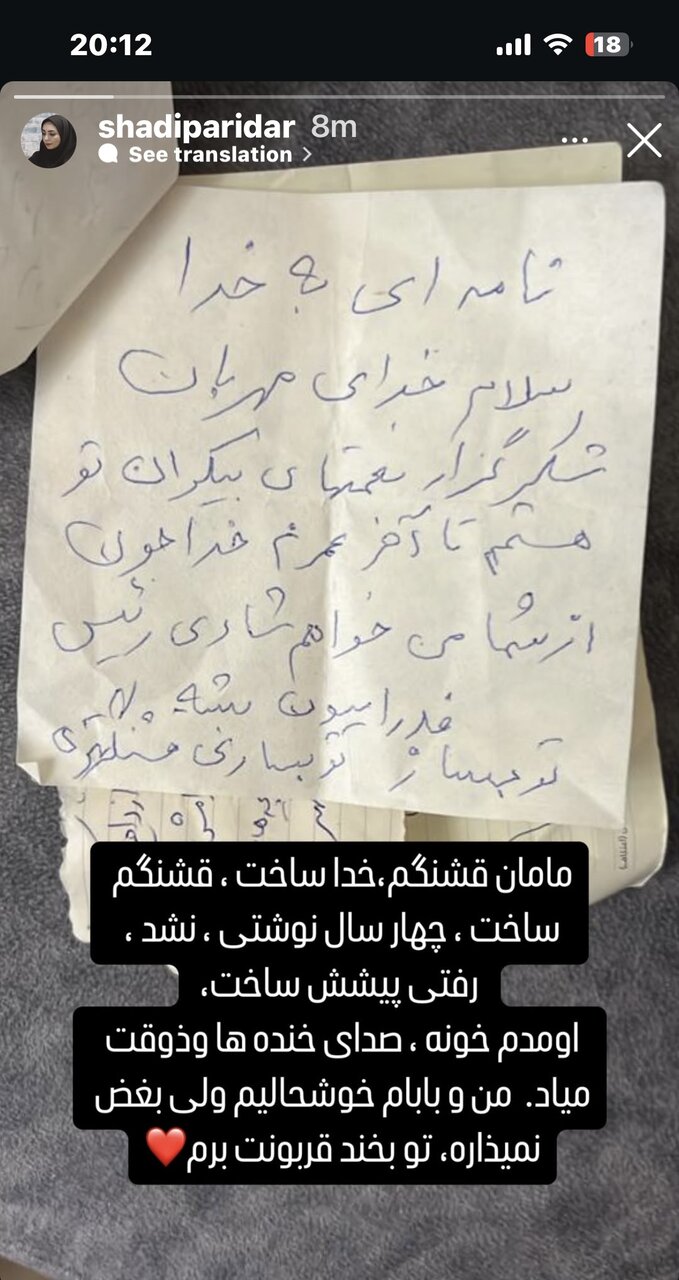 20:12
18
shadiparidar 8m
See translation
نامه ای به خدا
سلام خدای مهربان
شکرگزار نعمتهای بیکران تو
هستم تا آخر عمرم خداجون
از شما می خواهم شادی رئیس
فدراسیون بشه
تو بساز تو بسازی
مامان قشنگم،خدا ساخت ، قشنگم
ساخت ، چهار سال نوشتی ، نشد ،
رفتی پیشش ساخت،
اومدم خونه ، صدای خنده ها وذوقت
میاد. من و بابام خوشحالیم ولی بغض
نمیذاره، تو بخند قربونت برم❤️